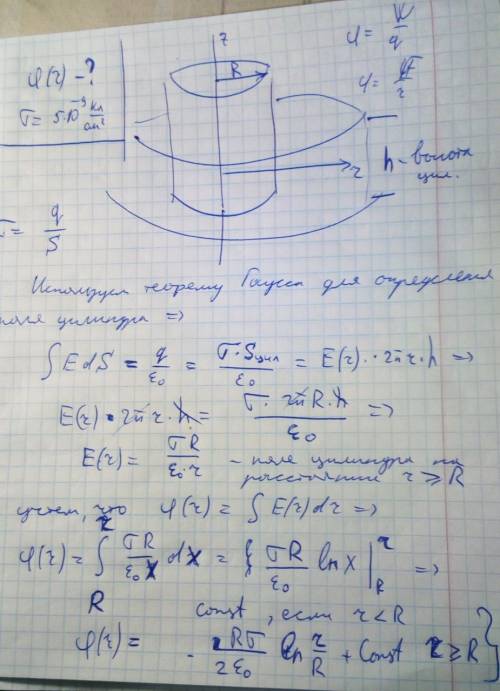 z
φ = W/q
φ(r) - ?
R
σ = 5·10⁻⁹ Кл/см²
r
h - высота
цил.
σ = q/S
Используем теорему Гаусса для определения
поля цилиндра =>
∫ E dS = q/ε₀ = σ·Sцил/ε₀ = E(r)··2πr·h =>
E(r)·2πr·h = σ·2πR·h/ε₀ =>
E(r) = σR/ε₀·r - поле цилиндра на
расстоянии r ≥ R
учтем, что φ(r) = ∫ E(r)dr =>
φ(r) = ∫ᵣ_R σR/ε₀x dx = { σR/ε₀ ln x |ʳ_R =>
const, если r < R
φ(r) = - 2Rσ/2ε₀ ln r/R + Const r ≥ R }